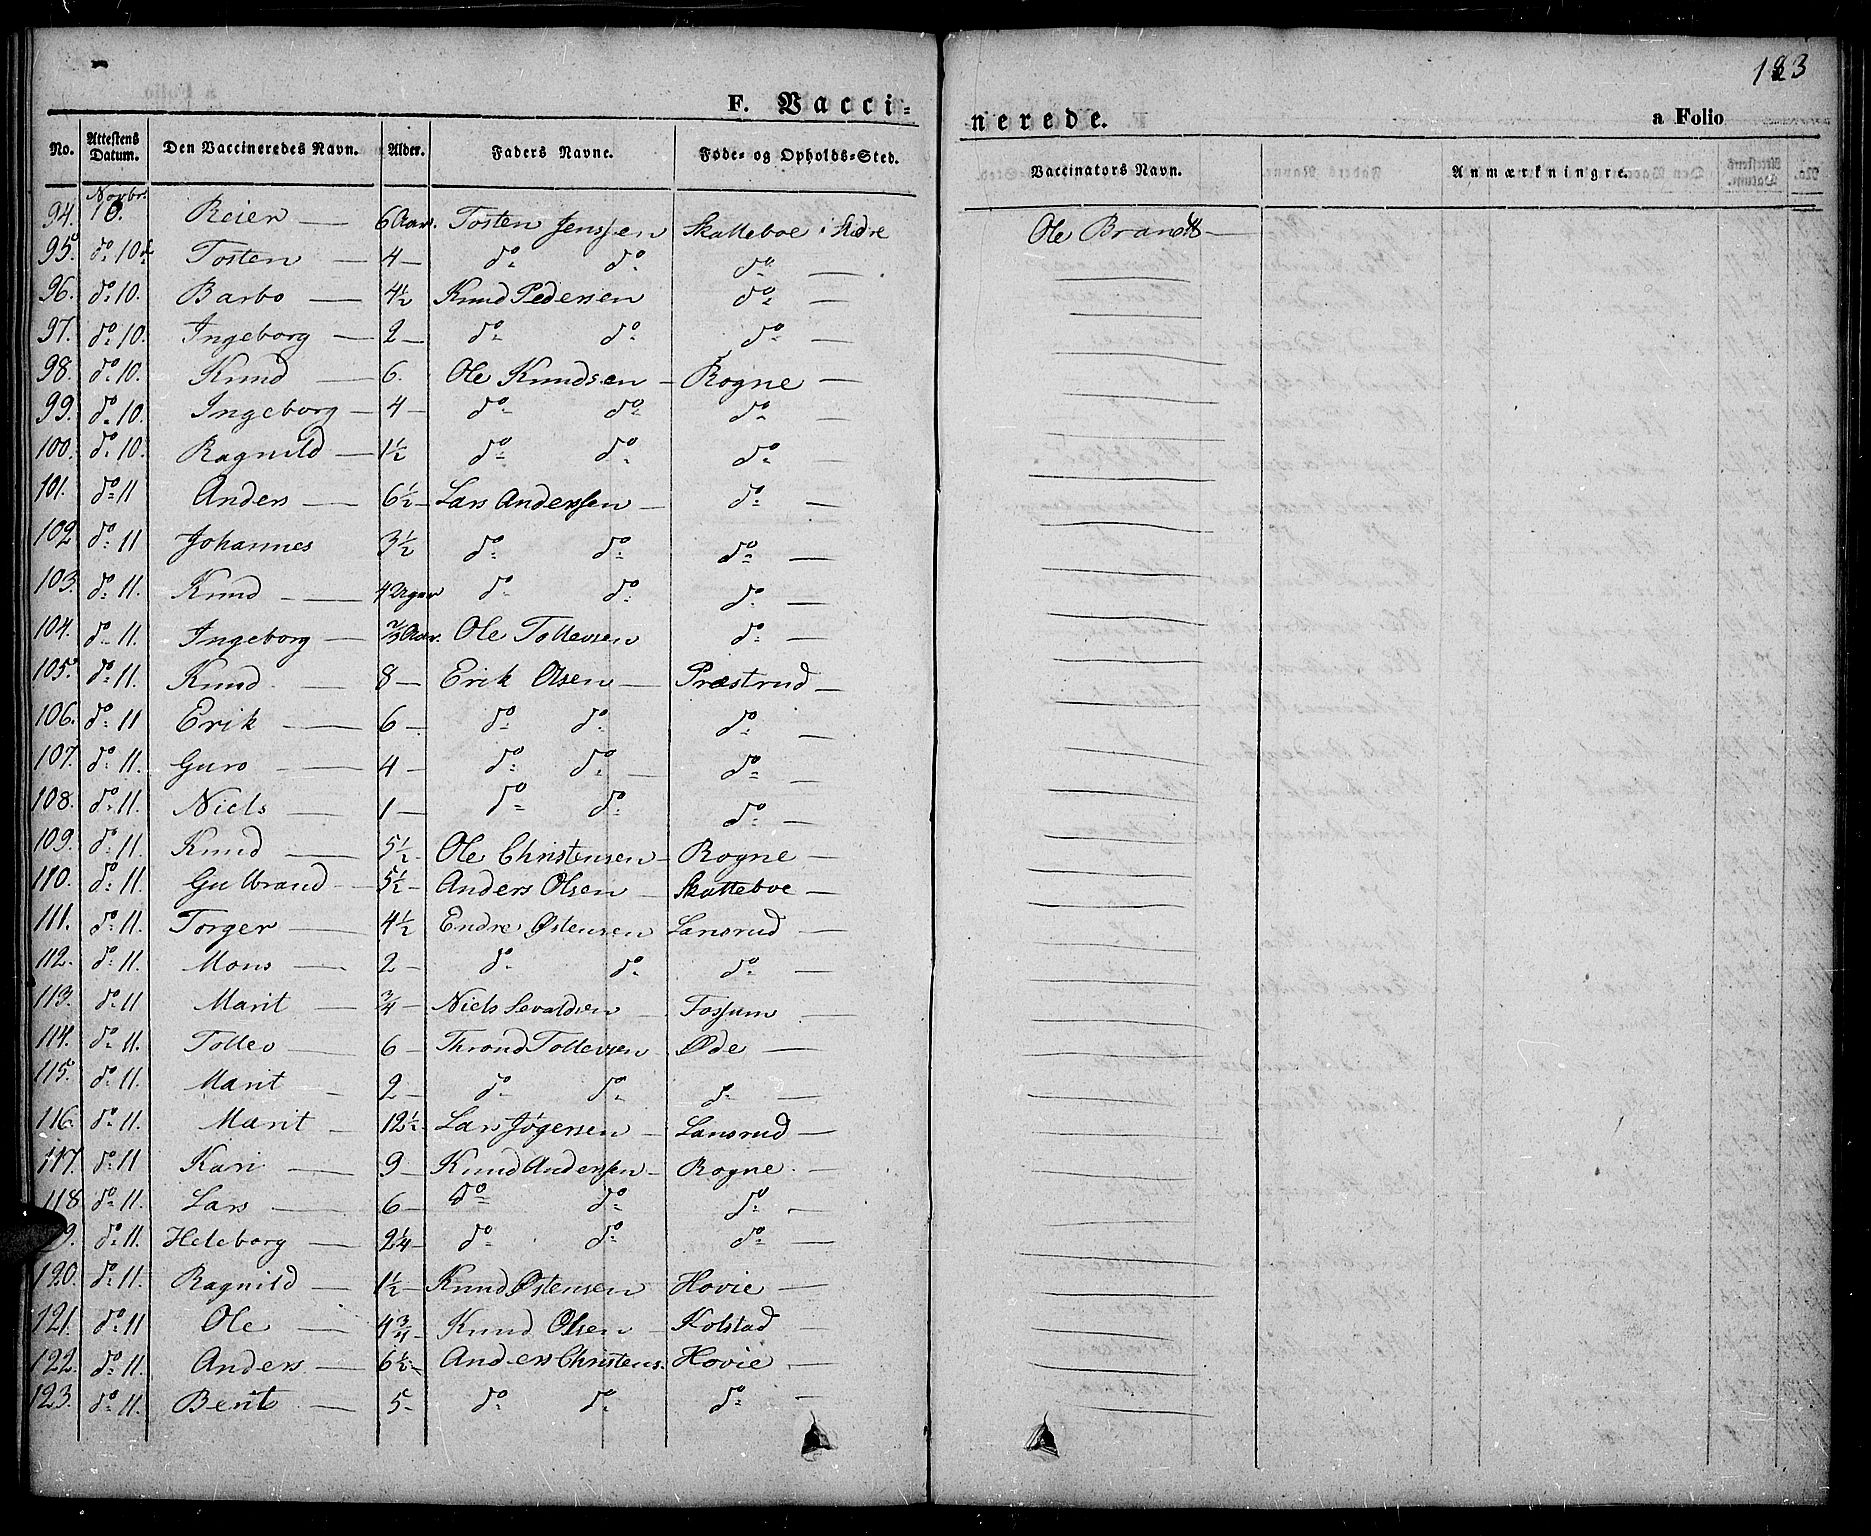 123
F. Vacci-
nerede.
a Folio
No. Attestens Datum. Den Vaccineredes Navn. Alder. Faders Navne. Føde- og Opholds-Sted. Vaccinators Navn. Anmærkningre.
Novbr.
94. 10. Reier — 6 Aar. Tosten Jenssen Skatteboe i Slidre Ole Brandt —
95. do 10 Tosten — 4 — do do do —
96. do 10. Barbo — 4½ Knud Pedersen do —
97. do 10. Ingeborg — 2 — do do do —
98. do 10. Knud — 6. Ole Knudsen — Rogne —
99. do 10. Ingeborg — 4 — do do do —
100. do 10. Ragnild — 1½ do do do —
101. do 11 Anders — 6½ — Lars Anderssen — do —
102 do 11 Johannes 3½ do do do —
103. do 11. Knud — 4 Uger do do do —
104. do 11. Ingeborg — Aar. Ole Tollevsen do —
105. do 11. Knud — 8 — Erik Olsen — Præstrud —
106. do 11 Erik — 6 — do do do —
107. do 11. Guro — 4 — do do — do —
108. do 11. Niels — 1 — do do do —
109. do 11. Knud — 5½ - Ole Christensen — Rogne —
110. do 11. Gulbrand — 5½ — Anders Olsen — Skatteboe —
111. do 11. Torger — 4½ Endre Østensen Lansrud —
112. do 11. Mons — 2 — do do do —
113. do 11 Marit — ¾ Niels Sevaldsen — Fossum —
114. do 11. Tollev — 6 — Thrond Tollevsen Øde —
115. do 11. Marit — 2 — do do do —
116. do 11. Marit — 12½ - Lars Jøgersen — Lansrud —
117. do 11 Kari — 9 — Knud Anderssen — Rogne —
118 do 11. Lars — 6 — do do do —
9. do 11. Heleborg — 2¼ — do do do —
120. do 11. Ragnild — 1½ — Knud Østensen Hovie —
121. do 11 Ole — 4¾ — Knud Olsen — Kolstad —
122. do 11. Anders — 6½ — Anders Christens. Hovie —
123. do 11. Berit — 5 - do do do —